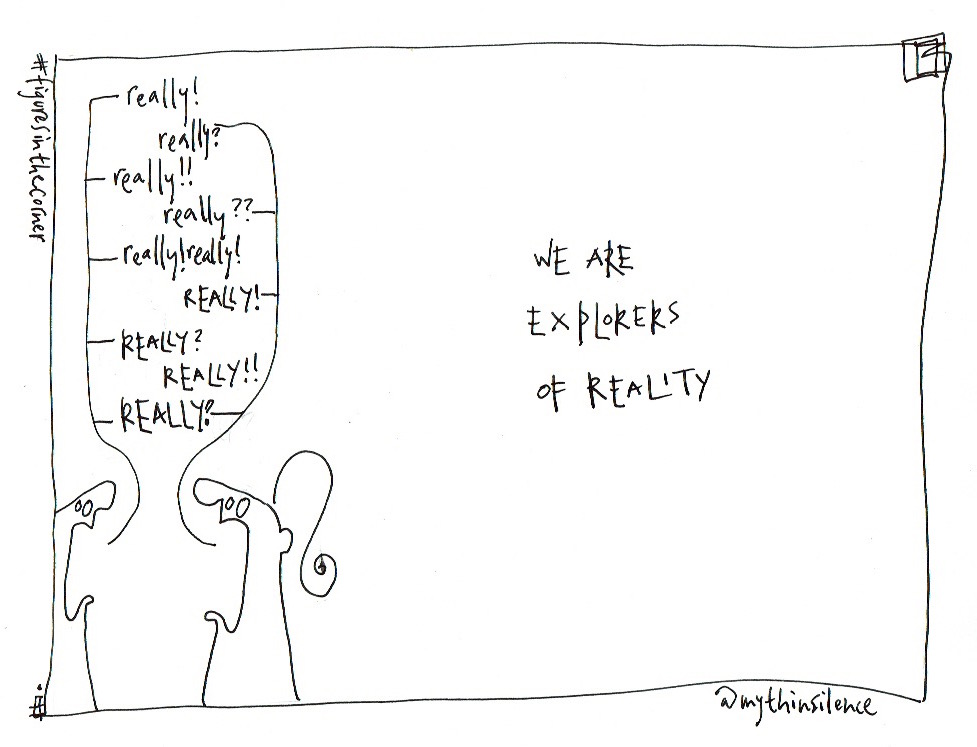 #figuresinthecorner
really!
really?
really!!
really??
really!really!
REALLY!
REALLY?
REALLY!!
REALLY?
WE ARE
EXPLORERS
OF REALITY
@mythinsilence